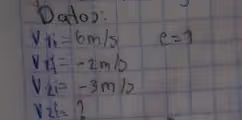 Datos:
V1i = 6 m/s e = 1
V1f = -2 m/s
V2i = -3 m/s
V2f = ?